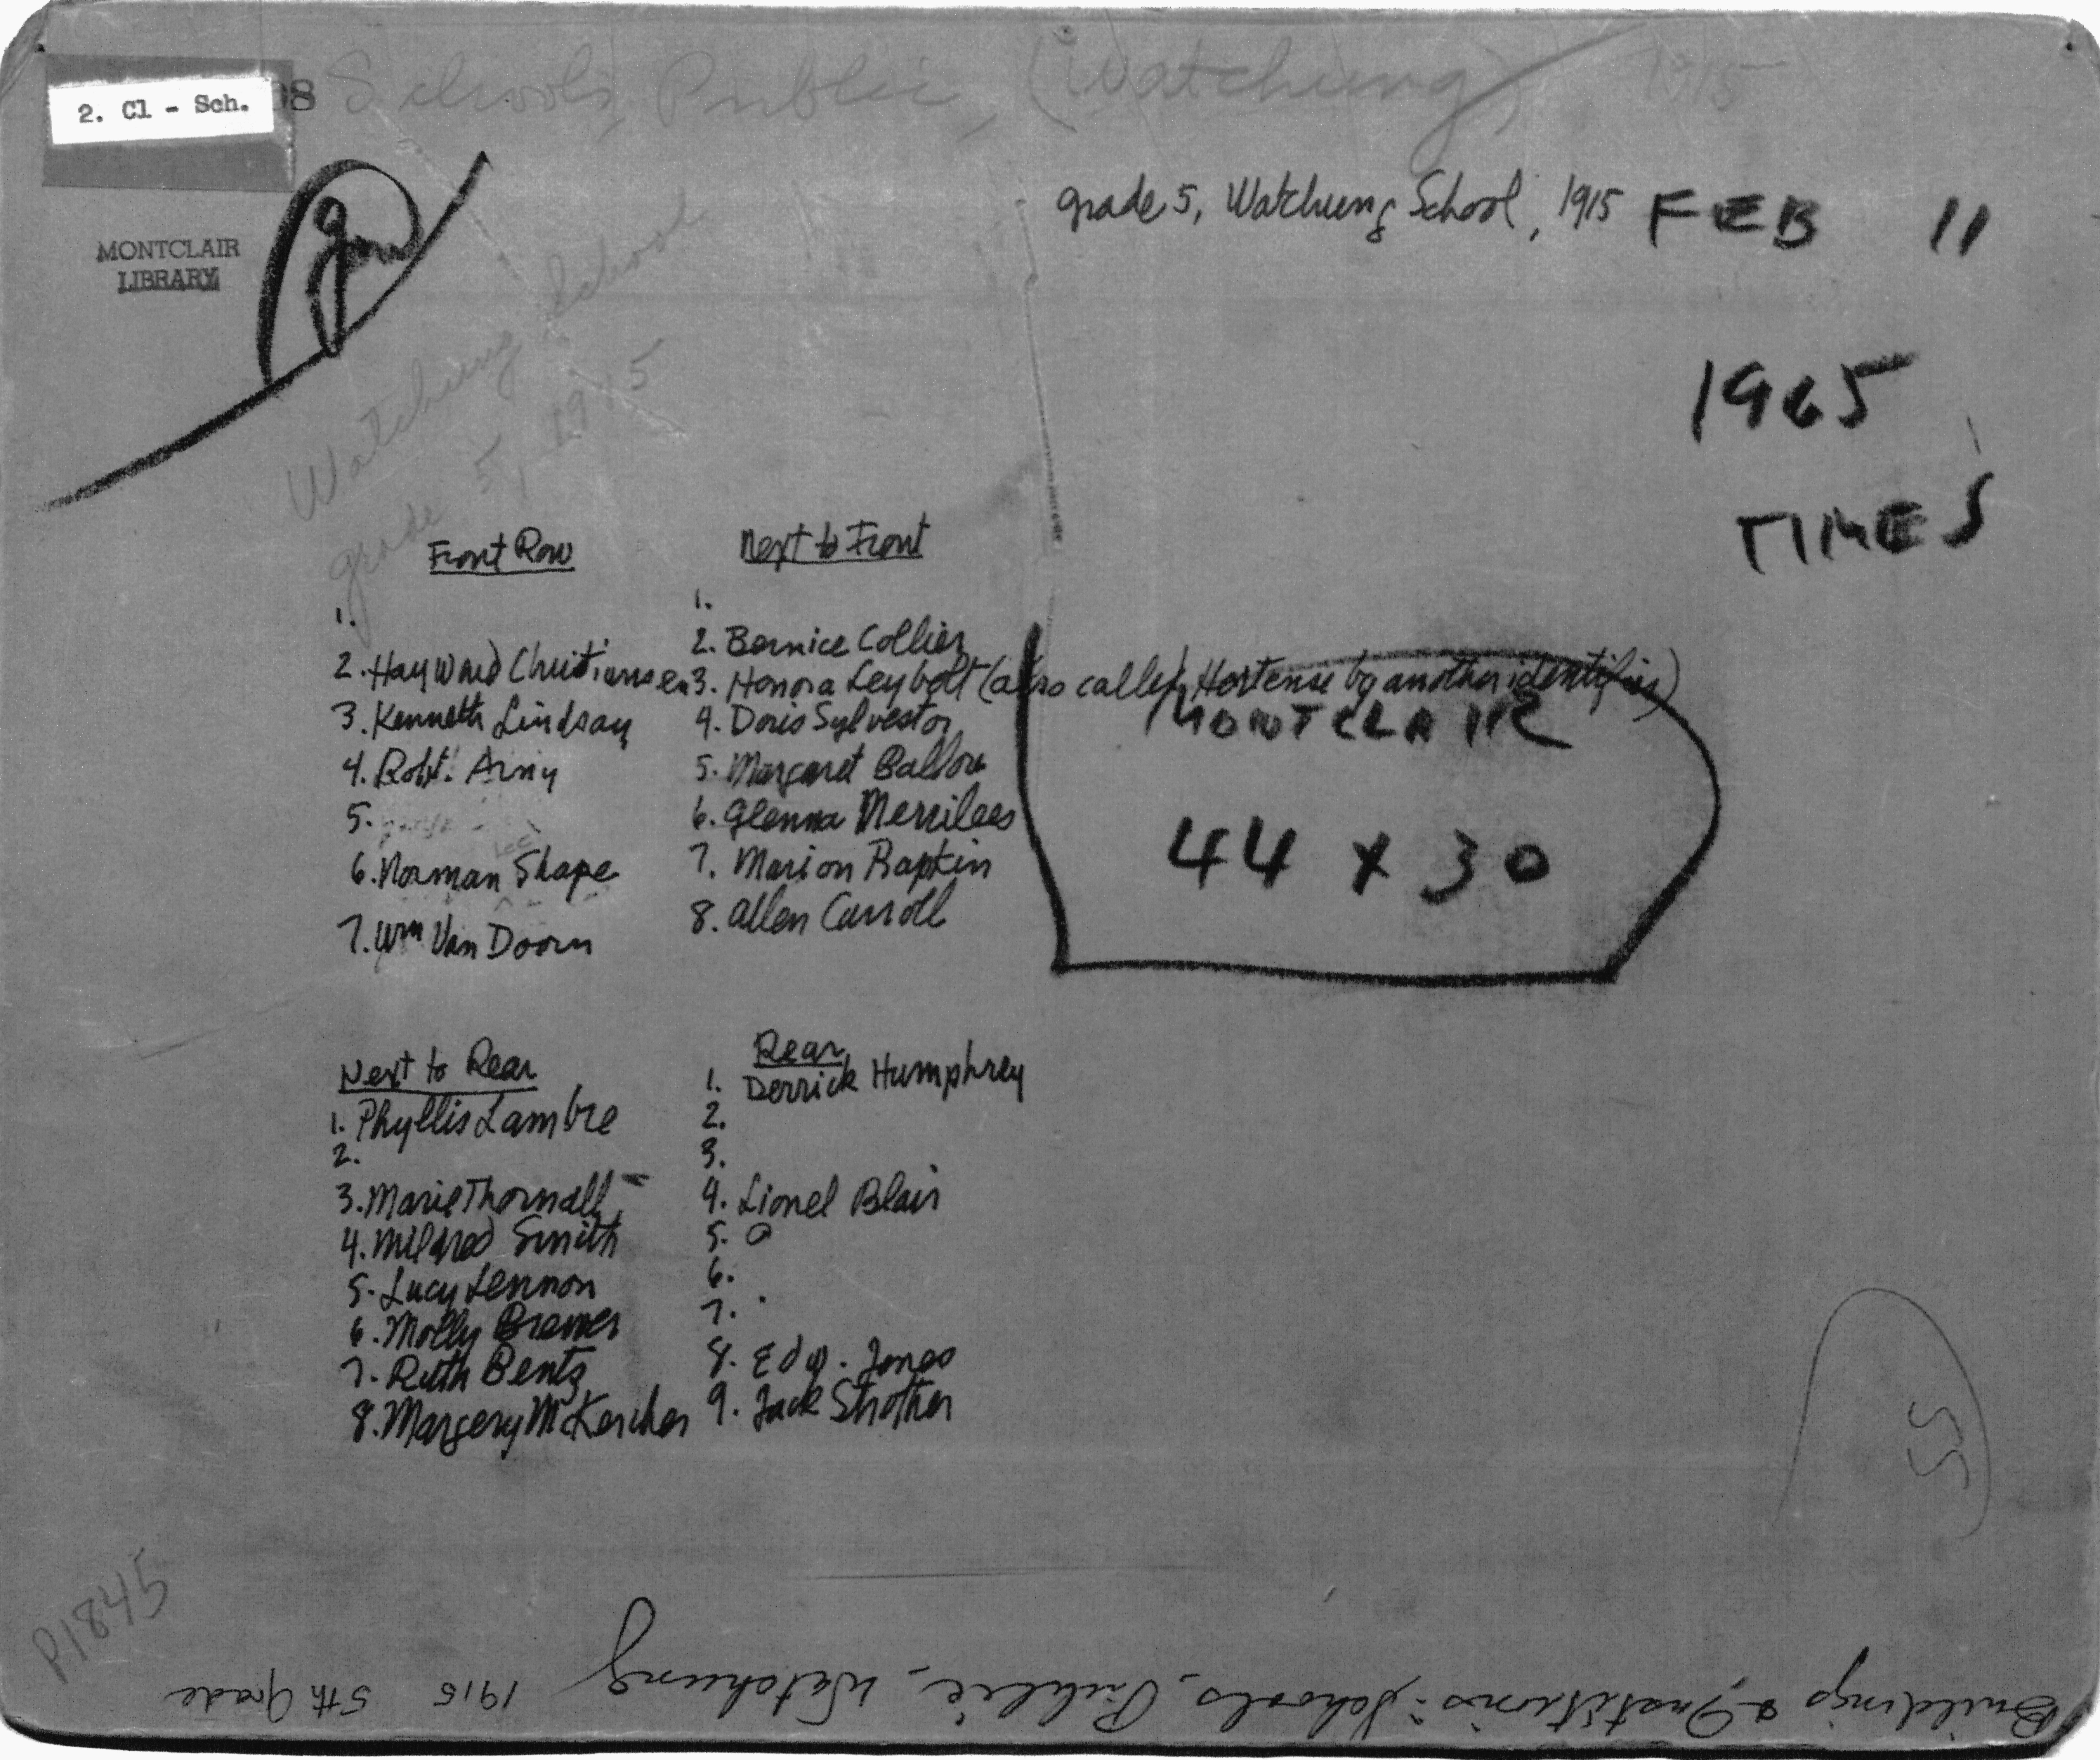 Schools, Public, (Watchung) 1915
2. Cl - Sch.
grade 5, Watchung School, 1915 FEB 11
MONTCLAIR
LIBRARY
Watchung School
grade 5, 1915
1965
TIMES
Front Row
1.
2. Hayward Christiansen
3. Kenneth Lindsay
4. Robt. Arny
5.
6. Norman Shape
7. Wm Van Doorn
Next to Front
1.
2. Bernice Collier
3. Honora Leybolt (also called Hortense by another identifier)
4. Doris Sylvestor
5. Margaret Ballou
6. Glenna Merrilees
7. Marion Rapkin
8. Allen Carroll
MONTCLAIR
44 x 30
Next to Rear
1. Phyllis Lambre
2.
3. Marie Thornall
4. Mildred Smith
5. Lucy Lennon
6. Molly Bremer
7. Ruth Bentz
8. Margery McKercher
Rear
1. Derrick Humphrey
2.
3.
4. Lionel Blair
5.
6.
7.
8. Edw. Jones
9. Jack Strother
55
P1845
Buildings & Institutions: Schools, Public, Watchung 1915 5th Grade